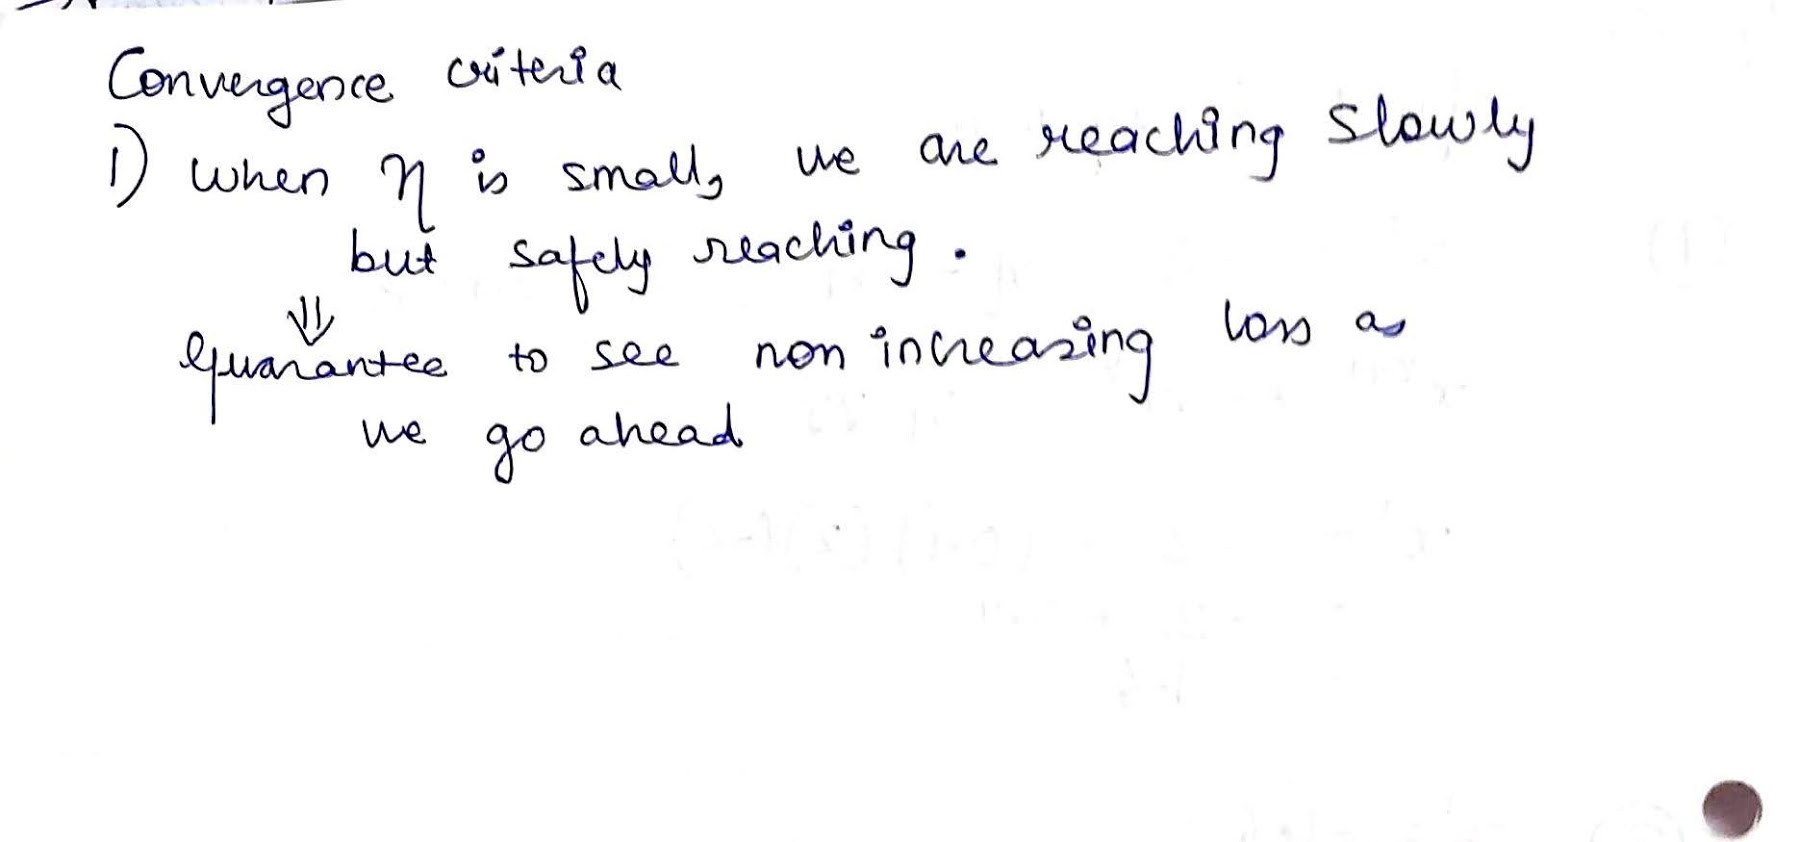 Convergence criteria
1) when η is small, we are reaching slowly
but safely reaching.
⇓
guarantee to see non increasing loss as
we go ahead